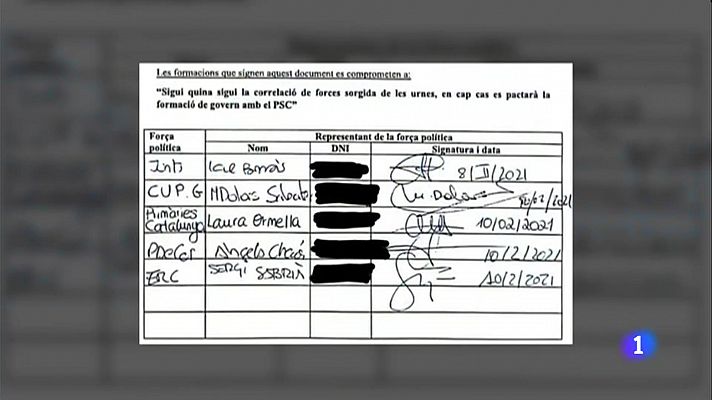 Les formacions que signen aquest document es comprometen a:
"Sigui quina sigui la correlació de forces sorgida de les urnes, en cap cas es pactarà la
formació de govern amb el PSC"
Força política Representant de la força política
Nom DNI Signatura i data
Junts 8/II/2021
CUP.G M Dolors 10/02/2021
Primàries Catalunya Laura Ormella 10/02/2021
PDeCat Àngels Chacón 10/2/2021
ERC SERGI SABRIÀ 10/2/2021
1